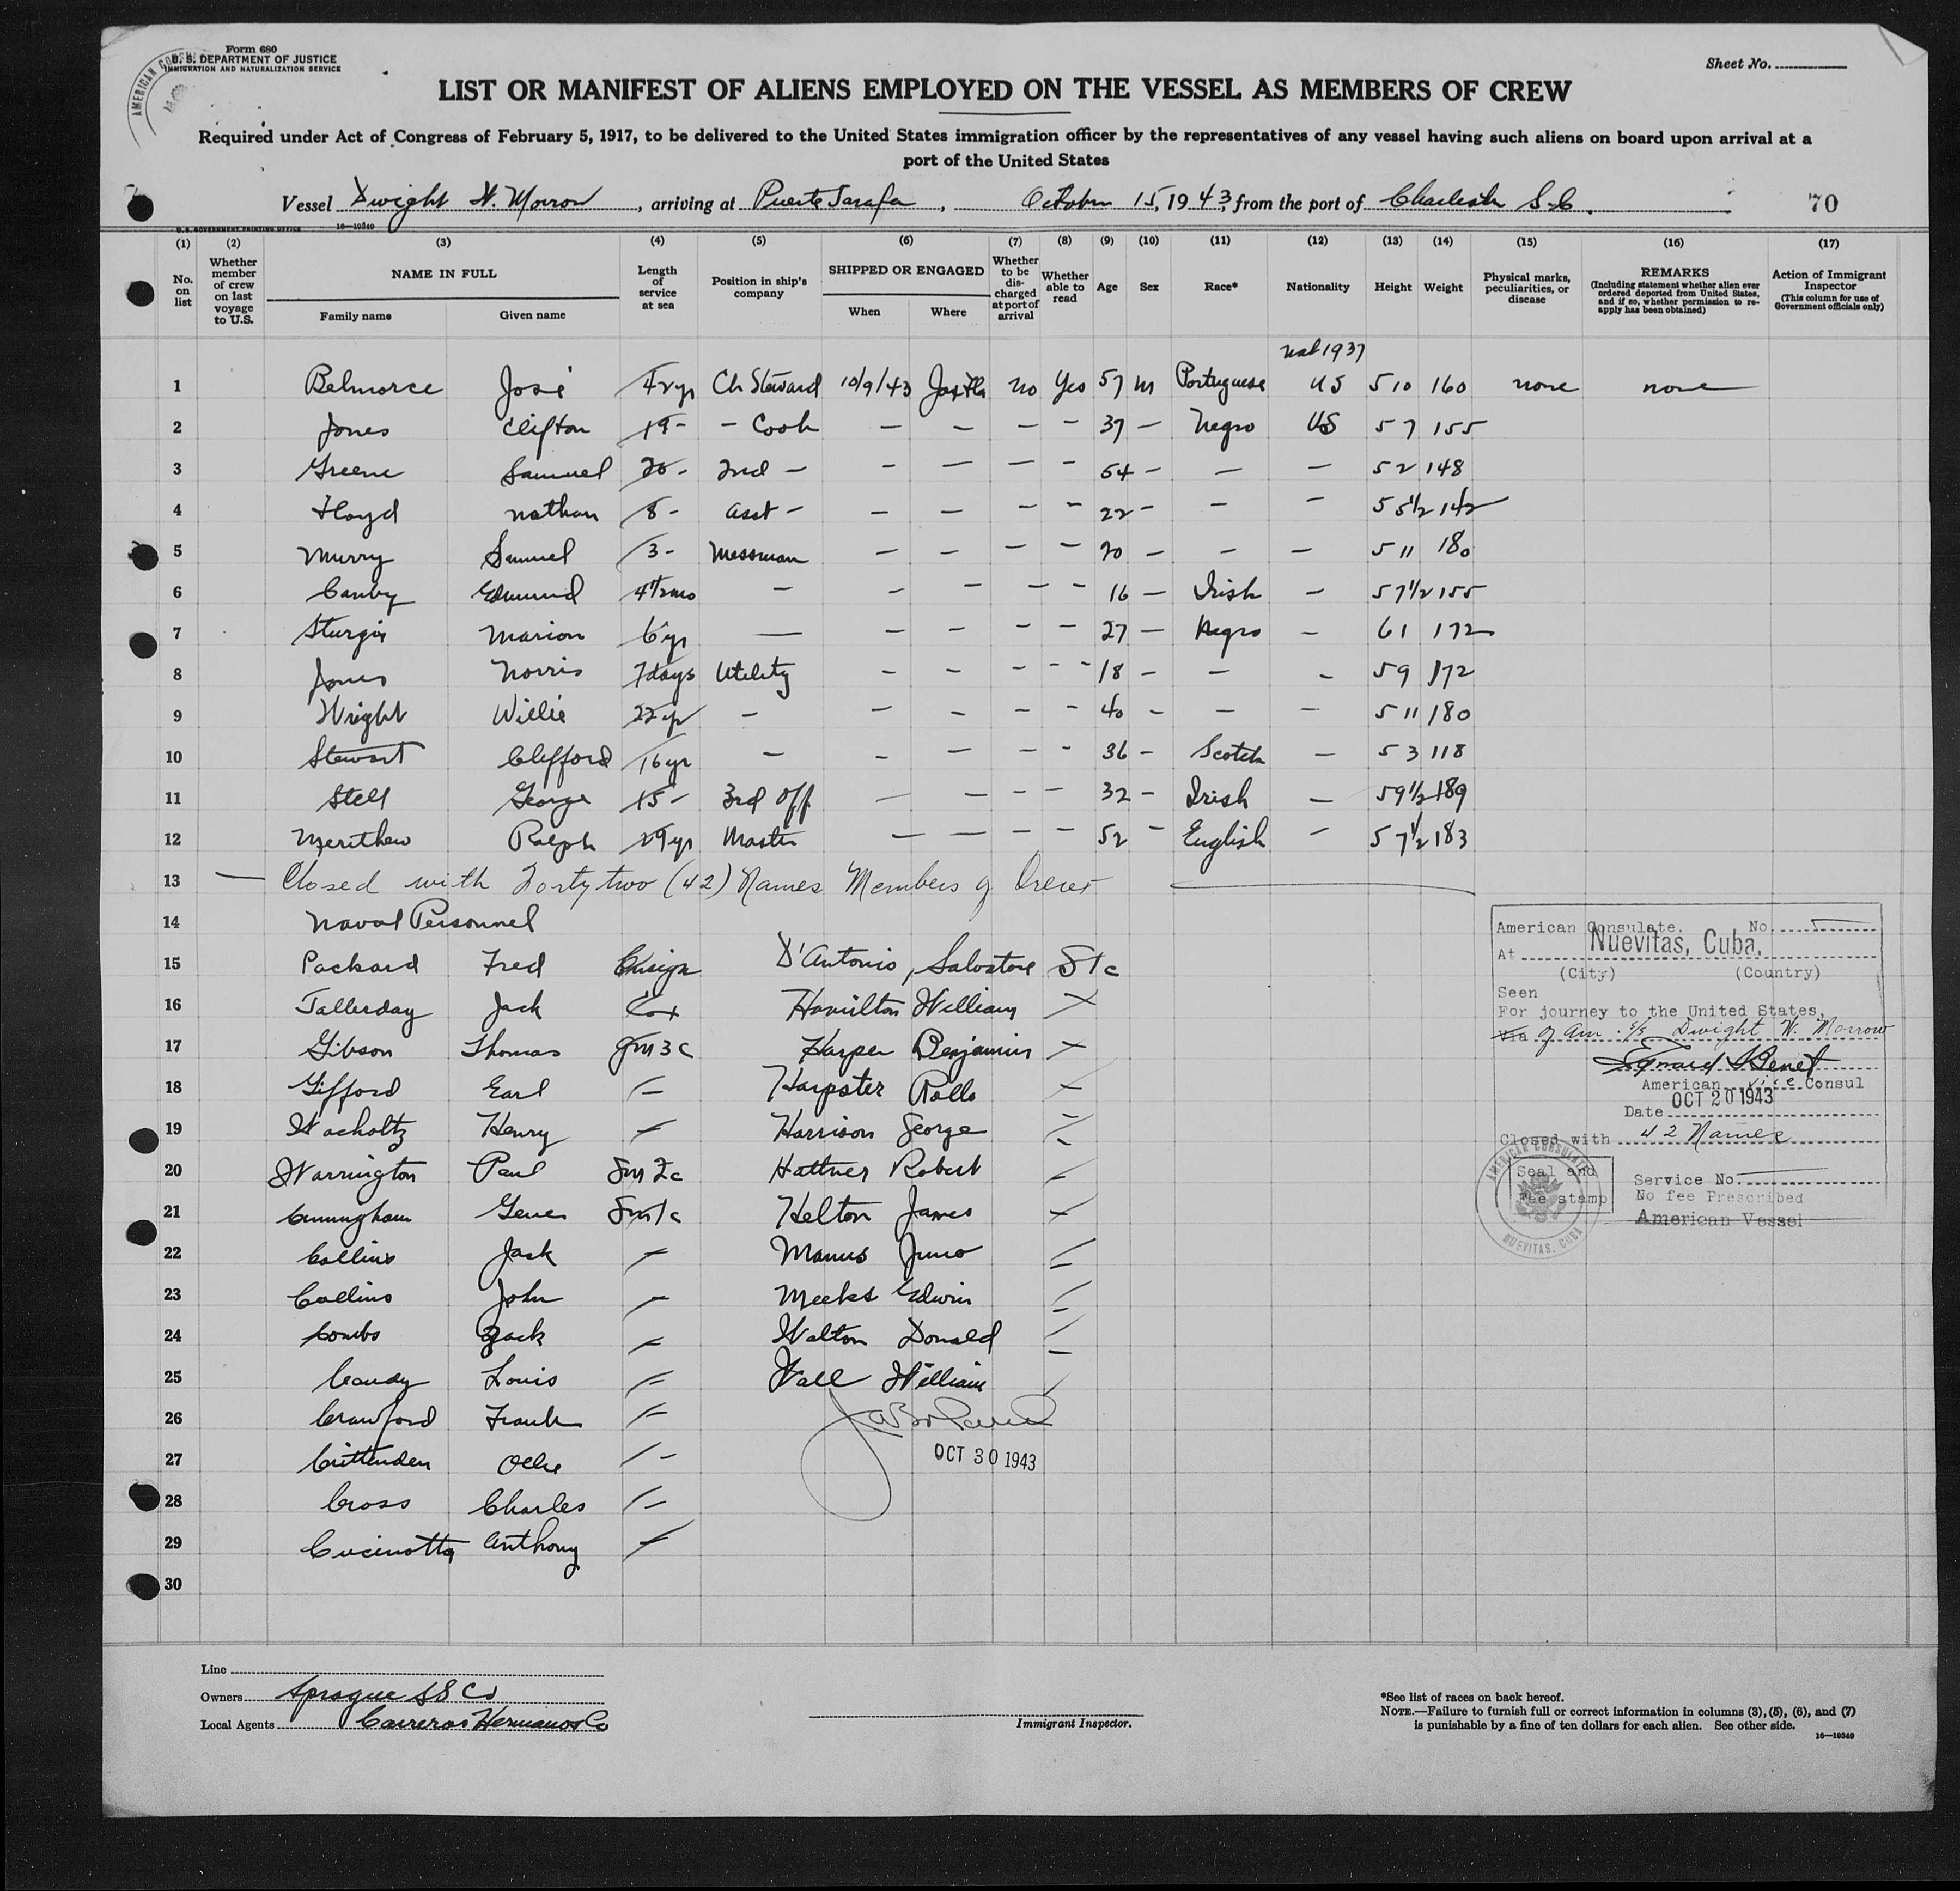 Form 680
U. S. DEPARTMENT OF JUSTICE
IMMIGRATION AND NATURALIZATION SERVICE
AMERICAN
Sheet No.
LIST OR MANIFEST OF ALIENS EMPLOYED ON THE VESSEL AS MEMBERS OF CREW
Required under Act of Congress of February 5, 1917, to be delivered to the United States immigration officer by the representatives of any vessel having such aliens on board upon arrival at a
port of the United States
Vessel Dwight W. Morrow, arriving at Puerto Tarafa, October 15, 1943, from the port of Charleston S.C. 70
U. S. GOVERNMENT PRINTING OFFICE 16—19349
(1) (2) (3) (4) (5) (6) (7) (8) (9) (10) (11) (12) (13) (14) (15) (16) (17)
No. on list
Whether member of crew on last voyage to U.S.
NAME IN FULL
Family name Given name
Length of service at sea
Position in ship's company
SHIPPED OR ENGAGED
When Where
Whether to be discharged at port of arrival
Whether able to read
Age
Sex
Race*
Nationality
Height
Weight
Physical marks, peculiarities, or disease
REMARKS
(Including statement whether alien ever ordered deported from United States, and if so, whether permission to reapply has been obtained)
Action of Immigrant Inspector
(This column for use of Government officials only)
nat 1937
1 Belmorce José 42 yr Ch Steward 10/9/43 Jax Fla no Yes 57 m Portuguese US 5 10 160 none none
2 Jones Clifton 19 - - Cook - - - - 37 - Negro US 5 7 155
3 Greene Samuel 20 - 2nd - - - - - 64 - - - 5 2 148
4 Floyd Nathan 8 - asst - - - - - 22 - - - 5 5 1/2 142
5 Murry Samuel 3 - Messman - - - - 20 - - - 5 11 180
6 Canby Edmund 4 1/2 mo - - - - - 16 - Irish - 5 7 1/2 155
7 Sturgis Marion 6 yr - - - - - 27 - Negro - 6 1 172
8 Jones Norris 7 days Utility - - - - 18 - - - 5 9 172
9 Wright Willie 22 yr - - - - - 40 - - - 5 11 180
10 Stewart Clifford 16 yr - - - - - 36 - Scotch - 5 3 118
11 Stell George 15 - 3rd off - - - - 32 - Irish - 5 9 1/2 189
12 Merithew Ralph 29 yr Master - - - - 52 - English - 5 7 1/2 183
13 Closed with Forty two (42) Names Members of Crew
14 Naval Personnel
15 Packard Fred Ensign D'Antonio, Salvatore S1c
16 Tallerday Jack Cox Hamilton William -
17 Gibson Thomas GM3c Harper Benjamin -
18 Gifford Earl - Harpster Rollo -
19 Wacholtz Henry - Harrison George -
20 Warrington Paul Sm 2c Hattner Robert -
21 Cunningham Gene Sm1c Helton James -
22 Collins Jack - Manus Juno -
23 Collins John - Meeks Edwin -
24 Combs Zack - Walton Donald -
25 Candy Louis - Wall William
26 Crawford Frank -
27 Crittenden Ollie - OCT 30 1943
28 Cross Charles -
29 Cucinotta Anthony -
30
American Consulate. No.
At Nuevitas, Cuba.
(City) (Country)
Seen
For journey to the United States,
Via of Am. S/S Dwight W. Morrow
American Vice Consul
Date OCT 20 1943
Closed with 42 Names
Seal and
Fee stamp
Service No.
No fee Prescribed
American Vessel
AMERICAN CONSULATE
NUEVITAS, CUBA
Line
Owners Sprague SS Co
Local Agents Carreras Hermanos Co
Immigrant Inspector.
*See list of races on back hereof.
NOTE.—Failure to furnish full or correct information in columns (3), (5), (6), and (7)
is punishable by a fine of ten dollars for each alien. See other side.
16—19349